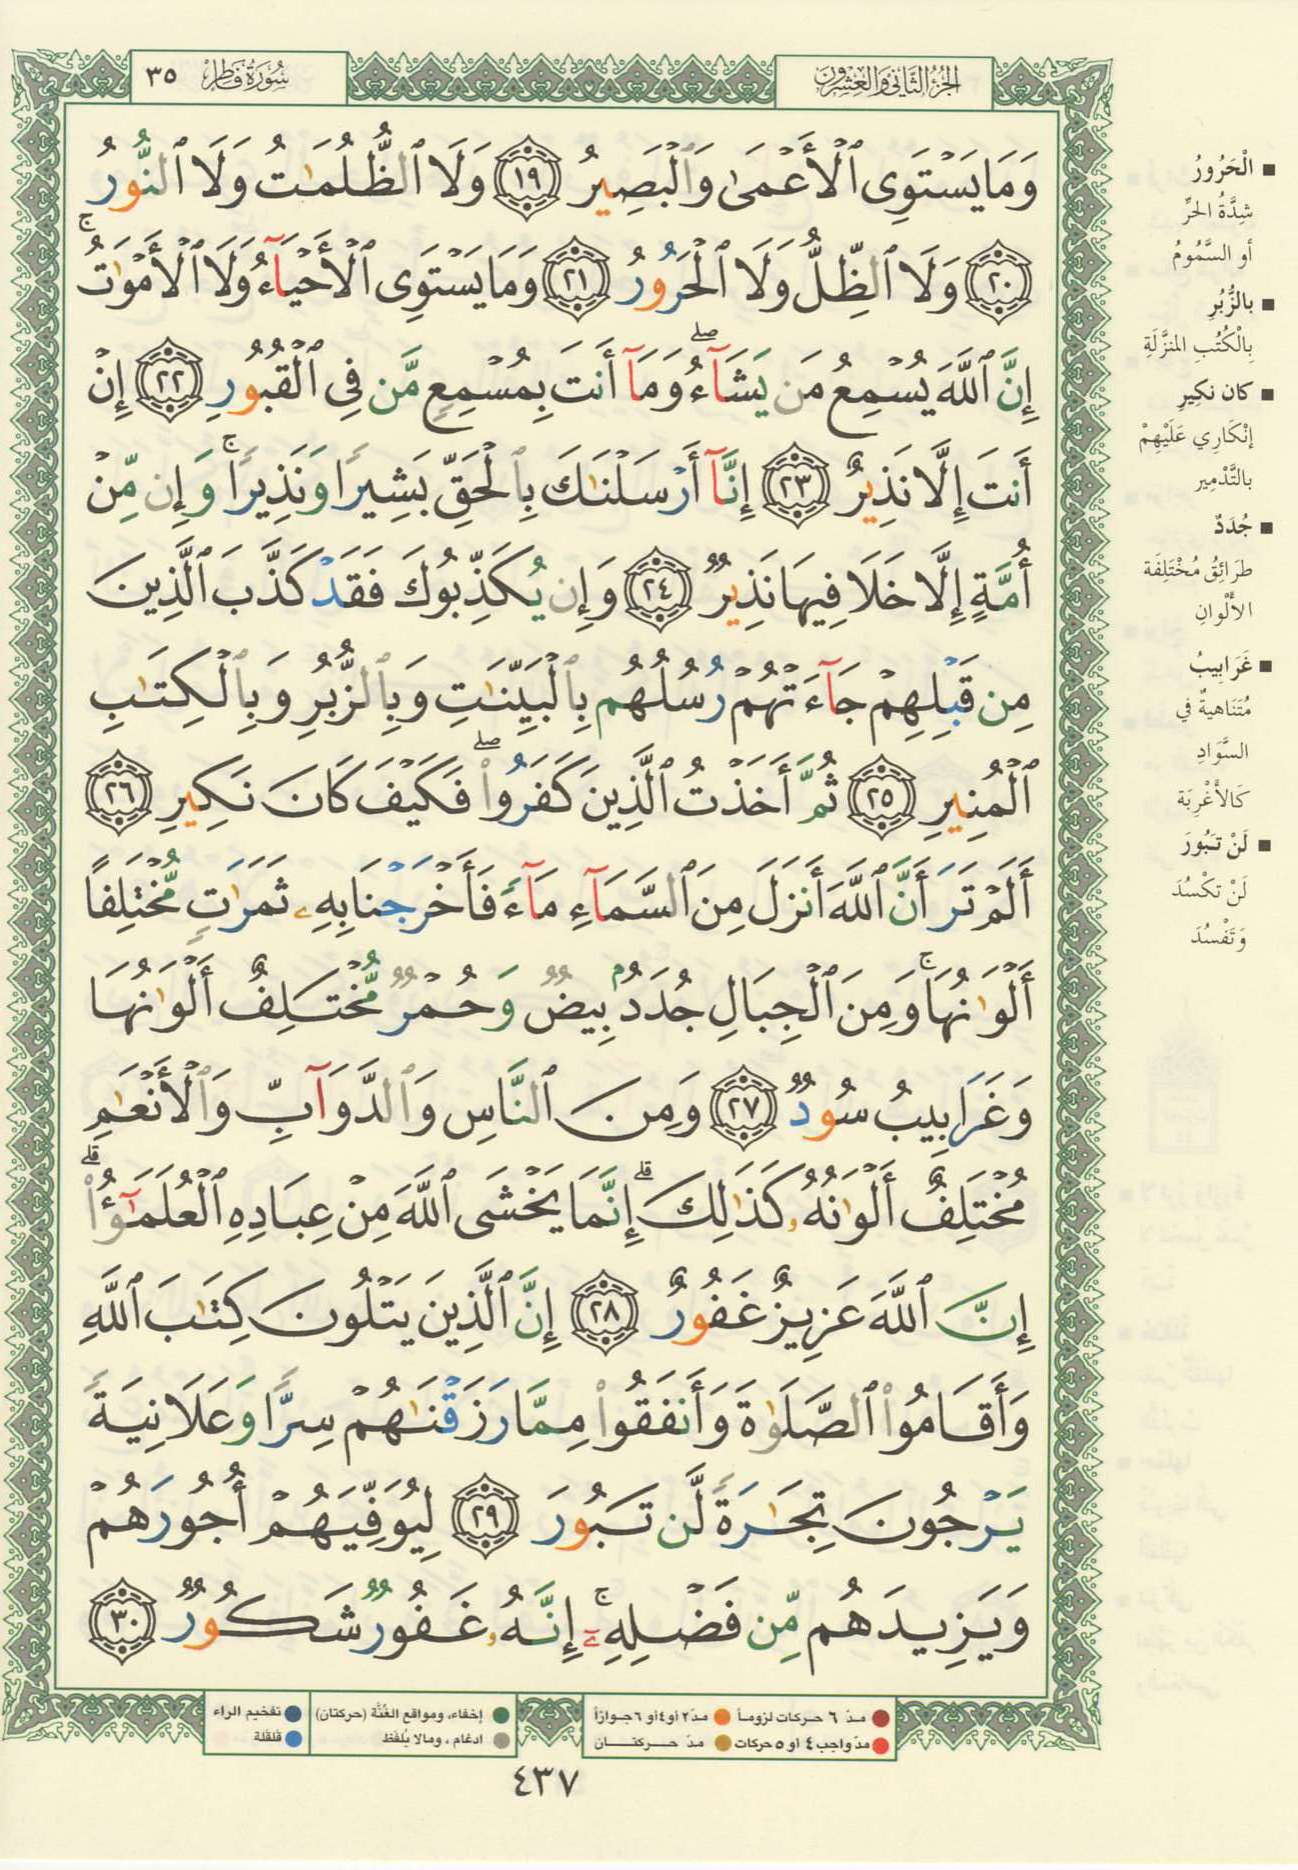 الجزء الثاني والعشرون
سورة فاطر ٣٥
وَمَا يَسْتَوِى ٱلْأَعْمَىٰ وَٱلْبَصِيرُ ١٩ وَلَا ٱلظُّلُمَٰتُ وَلَا ٱلنُّورُ
٢٠ وَلَا ٱلظِّلُّ وَلَا ٱلْحَرُورُ ٢١ وَمَا يَسْتَوِى ٱلْأَحْيَآءُ وَلَا ٱلْأَمْوَٰتُ ۚ
إِنَّ ٱللَّهَ يُسْمِعُ مَن يَشَآءُ ۖ وَمَآ أَنتَ بِمُسْمِعٍ مَّن فِى ٱلْقُبُورِ ٢٢ إِنْ
أَنتَ إِلَّا نَذِيرٌ ٢٣ إِنَّآ أَرْسَلْنَٰكَ بِٱلْحَقِّ بَشِيرًا وَنَذِيرًا ۚ وَإِن مِّنْ
أُمَّةٍ إِلَّا خَلَا فِيهَا نَذِيرٌ ٢٤ وَإِن يُكَذِّبُوكَ فَقَدْ كَذَّبَ ٱلَّذِينَ
مِن قَبْلِهِمْ جَآءَتْهُمْ رُسُلُهُم بِٱلْبَيِّنَٰتِ وَبِٱلزُّبُرِ وَبِٱلْكِتَٰبِ
ٱلْمُنِيرِ ٢٥ ثُمَّ أَخَذْتُ ٱلَّذِينَ كَفَرُوا۟ ۖ فَكَيْفَ كَانَ نَكِيرِ ٢٦
أَلَمْ تَرَ أَنَّ ٱللَّهَ أَنزَلَ مِنَ ٱلسَّمَآءِ مَآءً فَأَخْرَجْنَا بِهِۦ ثَمَرَٰتٍ مُّخْتَلِفًا
أَلْوَٰنُهَا ۚ وَمِنَ ٱلْجِبَالِ جُدَدٌۢ بِيضٌ وَحُمْرٌ مُّخْتَلِفٌ أَلْوَٰنُهَا
وَغَرَابِيبُ سُودٌ ٢٧ وَمِنَ ٱلنَّاسِ وَٱلدَّوَآبِّ وَٱلْأَنْعَٰمِ
مُخْتَلِفٌ أَلْوَٰنُهُۥ كَذَٰلِكَ ۗ إِنَّمَا يَخْشَى ٱللَّهَ مِنْ عِبَادِهِ ٱلْعُلَمَٰٓؤُا۟ ۗ
إِنَّ ٱللَّهَ عَزِيزٌ غَفُورٌ ٢٨ إِنَّ ٱلَّذِينَ يَتْلُونَ كِتَٰبَ ٱللَّهِ
وَأَقَامُوا۟ ٱلصَّلَوٰةَ وَأَنفَقُوا۟ مِمَّا رَزَقْنَٰهُمْ سِرًّا وَعَلَانِيَةً
يَرْجُونَ تِجَٰرَةً لَّن تَبُورَ ٢٩ لِيُوَفِّيَهُمْ أُجُورَهُمْ
وَيَزِيدَهُم مِّن فَضْلِهِۦٓ ۚ إِنَّهُۥ غَفُورٌ شَكُورٌ ٣٠
■ الْحَرُورُ
شِدَّةُ الحَرِّ
أو السَّمُومُ
■ بالزُّبُرِ
بِالْكُتُبِ المنزَّلَةِ
■ كان نكِيرِ
إنْكَارِي عَلَيْهِمْ
بالتَّدْمِيرِ
■ جُدَدٌ
طَرَائِقُ مُخْتَلِفَة
الأَلْوانِ
■ غَرَابِيبُ
مُتَنَاهيةٌ في
السَّوَادِ
كَالأَغْرِبَة
■ لَنْ تَبُورَ
لَنْ تكْسُدَ
وَتَفْسُدَ
● مدّ ٦ حركات لزوماً ● مدّ٢ أو٤أو ٦جوازاً
● مدّ واجب٤ او ٥ حركات ● مدّ حركتان
● إخفاء، ومواقع الغُنَّة (حركتان) ● تفخيم الراء
● ادغام ، ومالا يُلفَظ ● قلقلة
٤٣٧